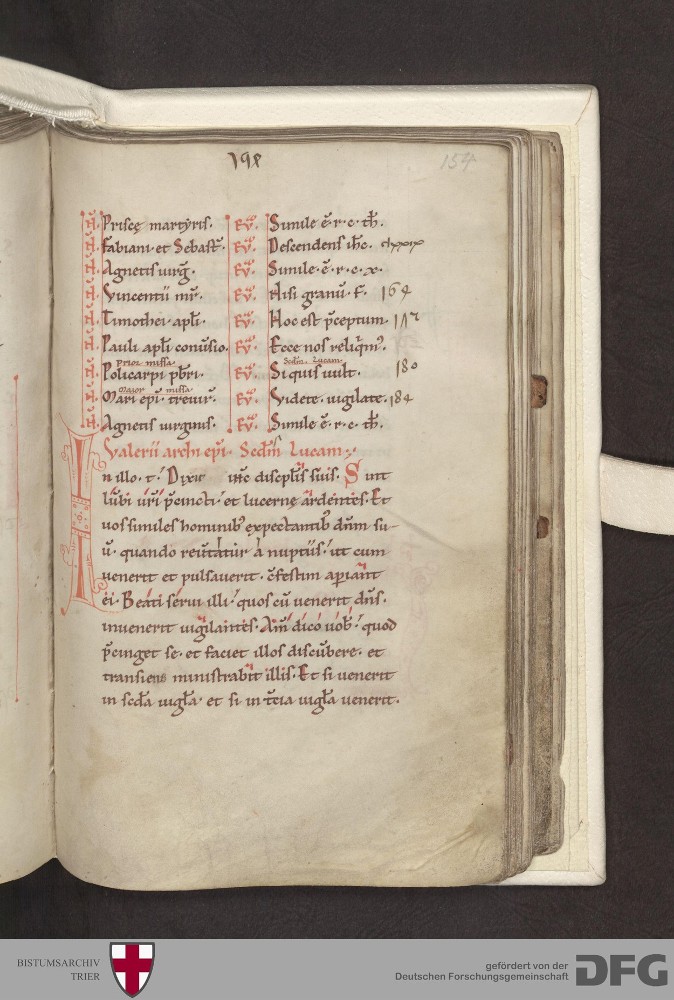 198
154
N. Priscę martyris. Ev̄. Simile ē. r. c. th̄.
N. Fabiani. et Sebast̄. Ev̄. Descendens ih̄c. clxxix
N. Agnetis uirḡ. Ev̄. Simile. ē. r. c. x.
N. Vincentii mr̄. Ev̄. Nisi granū. f. 164
N. Timothei. apl̄i. Ev̄. Hoc est p̄ceptum.
N. Pauli apl̄i conūsio. Ev̄. Ecce nos reliq̄mꝰ.
Prior missa. Scd̄m Lucam.
N. Policarpi p̄bri. Ev̄. Si quis uult. 180
Maior missa.
N. Mari ep̄i. treuir̄. Ev̄. Videte. uigilate. 184
N. Agnetis uirginis. Ev̄. Simile ē. r. c. th̄.
Valerii archi ep̄i. Scd̄m Lucam.
In illo. t̄. Dixit ih̄c discipl̄is suis. Sint
lūbi ur̄i p̄cincti. et lucernę ardentes. Et
uos similes hominibꝰ expectantibꝰ dn̄m su-
ū. quando reūtatur a nuptiis. ut cum
uenerit et pulsauerit. c̄festim aperiant
ei. Beati serui illi. quos cū uenerit dn̄s.
inuenerit uigilantes. Am̄ dico uob̄. quod
p̄cinget se. et faciet illos discūbere. et
transiens ministrabit illis. Et si uenerit
in scd̄a uigl̄a. et si in t̄cia uigl̄a uenerit.
BISTUMSARCHIV
TRIER
gefördert von der
Deutschen Forschungsgemeinschaft
DFG